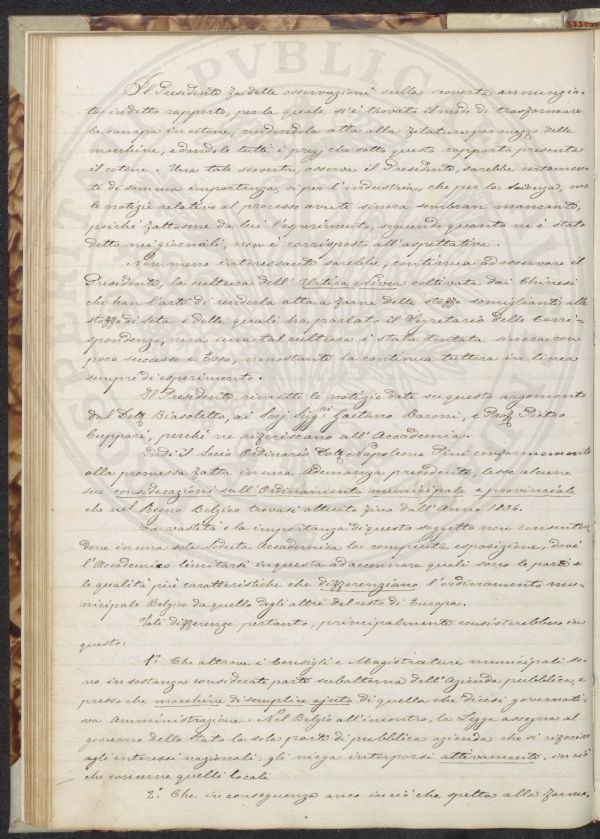 Il Presidente fa delle osservazioni sulla scoverta annunzia-
ta in detto rapporto, per la quale si è trovato il modo di trasformare
la canapa in cotone, rendendola atta alla filatura per mezzo delle
macchine, e dandole tutti i pregj che sotto questo rapporto presenta
il cotone. Una tale scoverta, osserva il Presidente, sarebbe certamen-
te di somma importanza, sì per l'industria, che per la scienza, ma
le notizie relative al processo avute sinora sembran mancanti,
poichè fattosene da lui l'esperimento, seguendo quanto ne è stato
detto nei giornali, non è corrisposto all'aspettativa.
Non meno interessante sarebbe, continua ad osservare il
Presidente, la cultura dell'Urtica Nivea coltivata dai Chinesi
che han l'arte di renderla atta a farne delle stoffe somiglianti alle
stoffe di seta e delle quali ha parlato il Segretario delle Corri-
spondenze, ma una tal cultura è stata tentata sinora con
poco successo e Esso, nonostante la continua tuttora in linea
sempre di esperimento.
Il Presidente rimette le notizie date su questo argomento
dal Dott. Biasoletto, ai Socj Sigg.ri Gaetano Baroni, e Prof. Pietro
Cuppari, perchè ne riferiscano all'Accademia.
Indi il Socio Ordinario Dott. Napoleone Pini conformemente
alla promessa fatta in una Adunanza precedente, lesse alcune
sue considerazioni sull'Ordinamento municipale e provinciale
che nel Regno Belgico trovasi attuato fino dall'Anno 1836.
La vastità e la importanza di questo soggetto non consenten-
done in una sola Seduta Accademica la compiuta esposizione, dovè
l'Accademico limitarsi in questa ad accennare quali sono le parti e
le qualità più caratteristiche che differenziano l'ordinamento mu-
nicipale Belgico da quello degli altri del resto di Europa.
Tali differenze pertanto, principalmente consisterebbero in
questo:
1.° Che altrove i Consigli e Magistrature municipali so-
no in sostanza considerate parte subalterna dell'Azienda pubblica, e
presso che macchine di semplice ajuto di quella che dicesi governati-
va Amministrazione. Nel Belgio all'incontro, la Legge assegna al
governo dello Stato la sola parte di pubblica azienda che si riferisce
agli interessi nazionali: gli niega interporsi attivamente, in ciò
che concerne quelli locali
2.° Che in conseguenza anco in ciò che spetta alla forma-